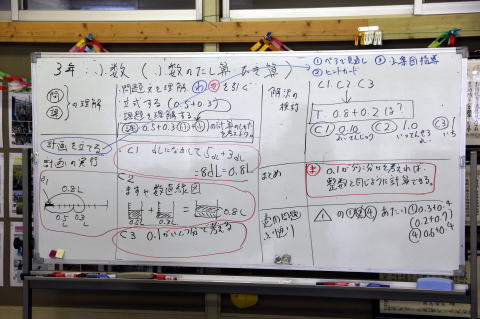 3年 小数(小数のたし算 ひき算)
①ペアで見通し ③小集団指導
②ヒントカード
問
課
の理解
問題文を理解 わ を引く
立式する (0.5+0.3)
課題を理解する
課 0.5+0.3の計算のしかたを考えよう。
計画を立てる
計画の実行
C1 dLになおして 5dL+3dL
=8dL=0.8L
0.8L
0.5L 0.3L
C2
ますや数直線図
0.5L + 0.3L = 0.8L
C3 0.1がいくつ分で考える
解決の検討
C1. C2. C3
T. 0.8+0.2は?
C1 0.10 C2 1.0 C3 1
まとめ
ま 0.1が何こ分かを考えれば、
整数と同じように計算できる。
適用問題
ふり返り
の あたり ①0.3+0.4
(0.2+0.7)
④0.6+0.4